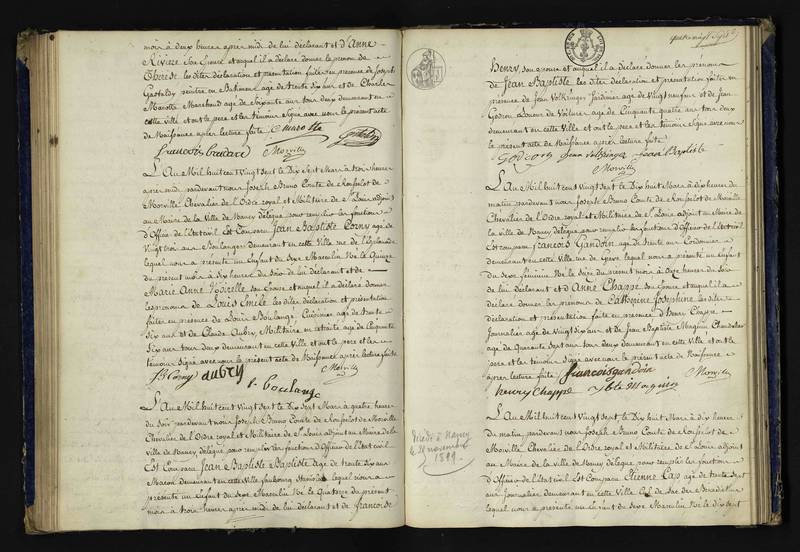 mois à deux heures après midi de lui déclarant et d'Anne
Riviere son Epouse et auquel il a déclaré donner le prenom de
Therese les dites déclaration et présentation faites en presence de Joseph
Gastaldy peintre en Batiment agé de trente six ans et de Charles
Marotte Marchand agé de Soixante ans tous deux demeurant en
cette ville et ont le pere et les témoins Signé avec nous le présent acte
de Naissance après lecture faite C marotte
francois Morville
L'An Mil huit cent Vingt Sept le Dix Sept Mars à trois heures
après midi pardevant nous Joseph Bruno Comte de Rousselot de
Morville Chevalier de l'Ordre royal et Militaire de St Louis adjoint
au Maire de la Ville de Nancy délégué pour remplir les fonctions
d'Officier de l'état civil Est Comparu Jean Baptiste Corny agé de
Vingt trois ans Boulanger demeurant en cette Ville rue de l'Esplanade
lequel nous a présenté un Enfant du Sexe Masculin Né le Quinze
du présent mois à dix heures du Soir de lui déclarant et de
Marie Anne son Epouse et auquel il a déclaré donner
les prenoms de Louis Emile les dites déclaration et présentation
faites en presence de Louis Boulangé Cuisinier agé de trente
Six ans et de Claude Aubry Militaire en retraite agé de Cinquante
Six ans tous deux demeurant en cette Ville et ont le pere et les
témoins Signé avec nous le présent acte de Naissance après lecture faite
JB Corny aubry Morville
l. boulangé
L'An Mil huit cent Vingt Sept le Dix Sept Mars à quatre heures
du Soir pardevant nous Joseph Bruno Comte de Rousselot de Morville
Chevalier de l'Ordre royal et Militaire de St Louis adjoint au Maire de la
Ville de Nancy délégué pour remplir les fonctions d'Officier de l'état civil
Est Comparu Jean Baptiste Baptiste agé de trente Six ans
Macon demeurant en cette Ville faubourg Stanislas lequel nous a
présenté un Enfant du Sexe Masculin Né le Quatorze du présent
mois à trois heures après midi de lui déclarant et de francoise
Henry, son epouse et auquel il a déclaré donner les prenoms
de Jean Baptiste les dites déclaration et présentation faites en
presence de Jean Voltzenger Jardinier agé de Vingt neuf ans et de Jean
Godron Loueur de Voitures agé de Cinquante quatre ans tous deux
demeurant en cette Ville et ont le pere et les témoins Signé avec nous
le présent acte de Naissance après lecture faite
Godron Jean Voltzenger Jean Baptiste
Morville
L'An Mil huit cent Vingt Sept le Dix huit Mars à dix heures du
matin pardevant nous Joseph Bruno Comte de Rousselot de Morville
Chevalier de l'Ordre royal et Militaire de St Louis adjoint au Maire de
la ville de Nancy délégué pour remplir les fonctions d'Officier de l'état civil
Est comparu François Gandoin agé de trente ans Cordonnier
demeurant en cette Ville rue de Grève lequel nous a présenté un Enfant
du Sexe féminin Né le Seize du present mois à Onze heures du Soir
de lui déclarant et d'Anne Chappe son Epouse et auquel il a
déclaré donner les prenoms de Catherine Josephine les dites
déclaration et présentation faites en presence d'Henry Chappe
Journalier agé de Vingt Six ans et de Jean Baptiste Maguin Chandelier
agé de Quarante Sept ans tous deux demeurant en cette Ville et ont le
pere et les témoins Signé avec nous le présent acte de Naissance
après lecture faite francois gandoin Morville
henry Chappe Jbte Maguin
L'An Mil huit cent Vingt Sept, le Dix huit Mars à dix heures
du matin, pardevant nous Joseph Bruno Comte de Rousselot de
Morville Chevalier de l'Ordre royal et Militaire de St Louis adjoint
au Maire de la Ville de Nancy délégué pour remplir les fonctions
d'Officier de l'état civil Est Comparu Etienne Cap agé de trente Sept
ans Journalier demeurant en cette Ville Cul de Sac des Bénédictins
lequel nous a présenté un Enfant du Sexe Masculin Né le Dix Sept
Décédé à Nancy
le 21 novembre
1899.